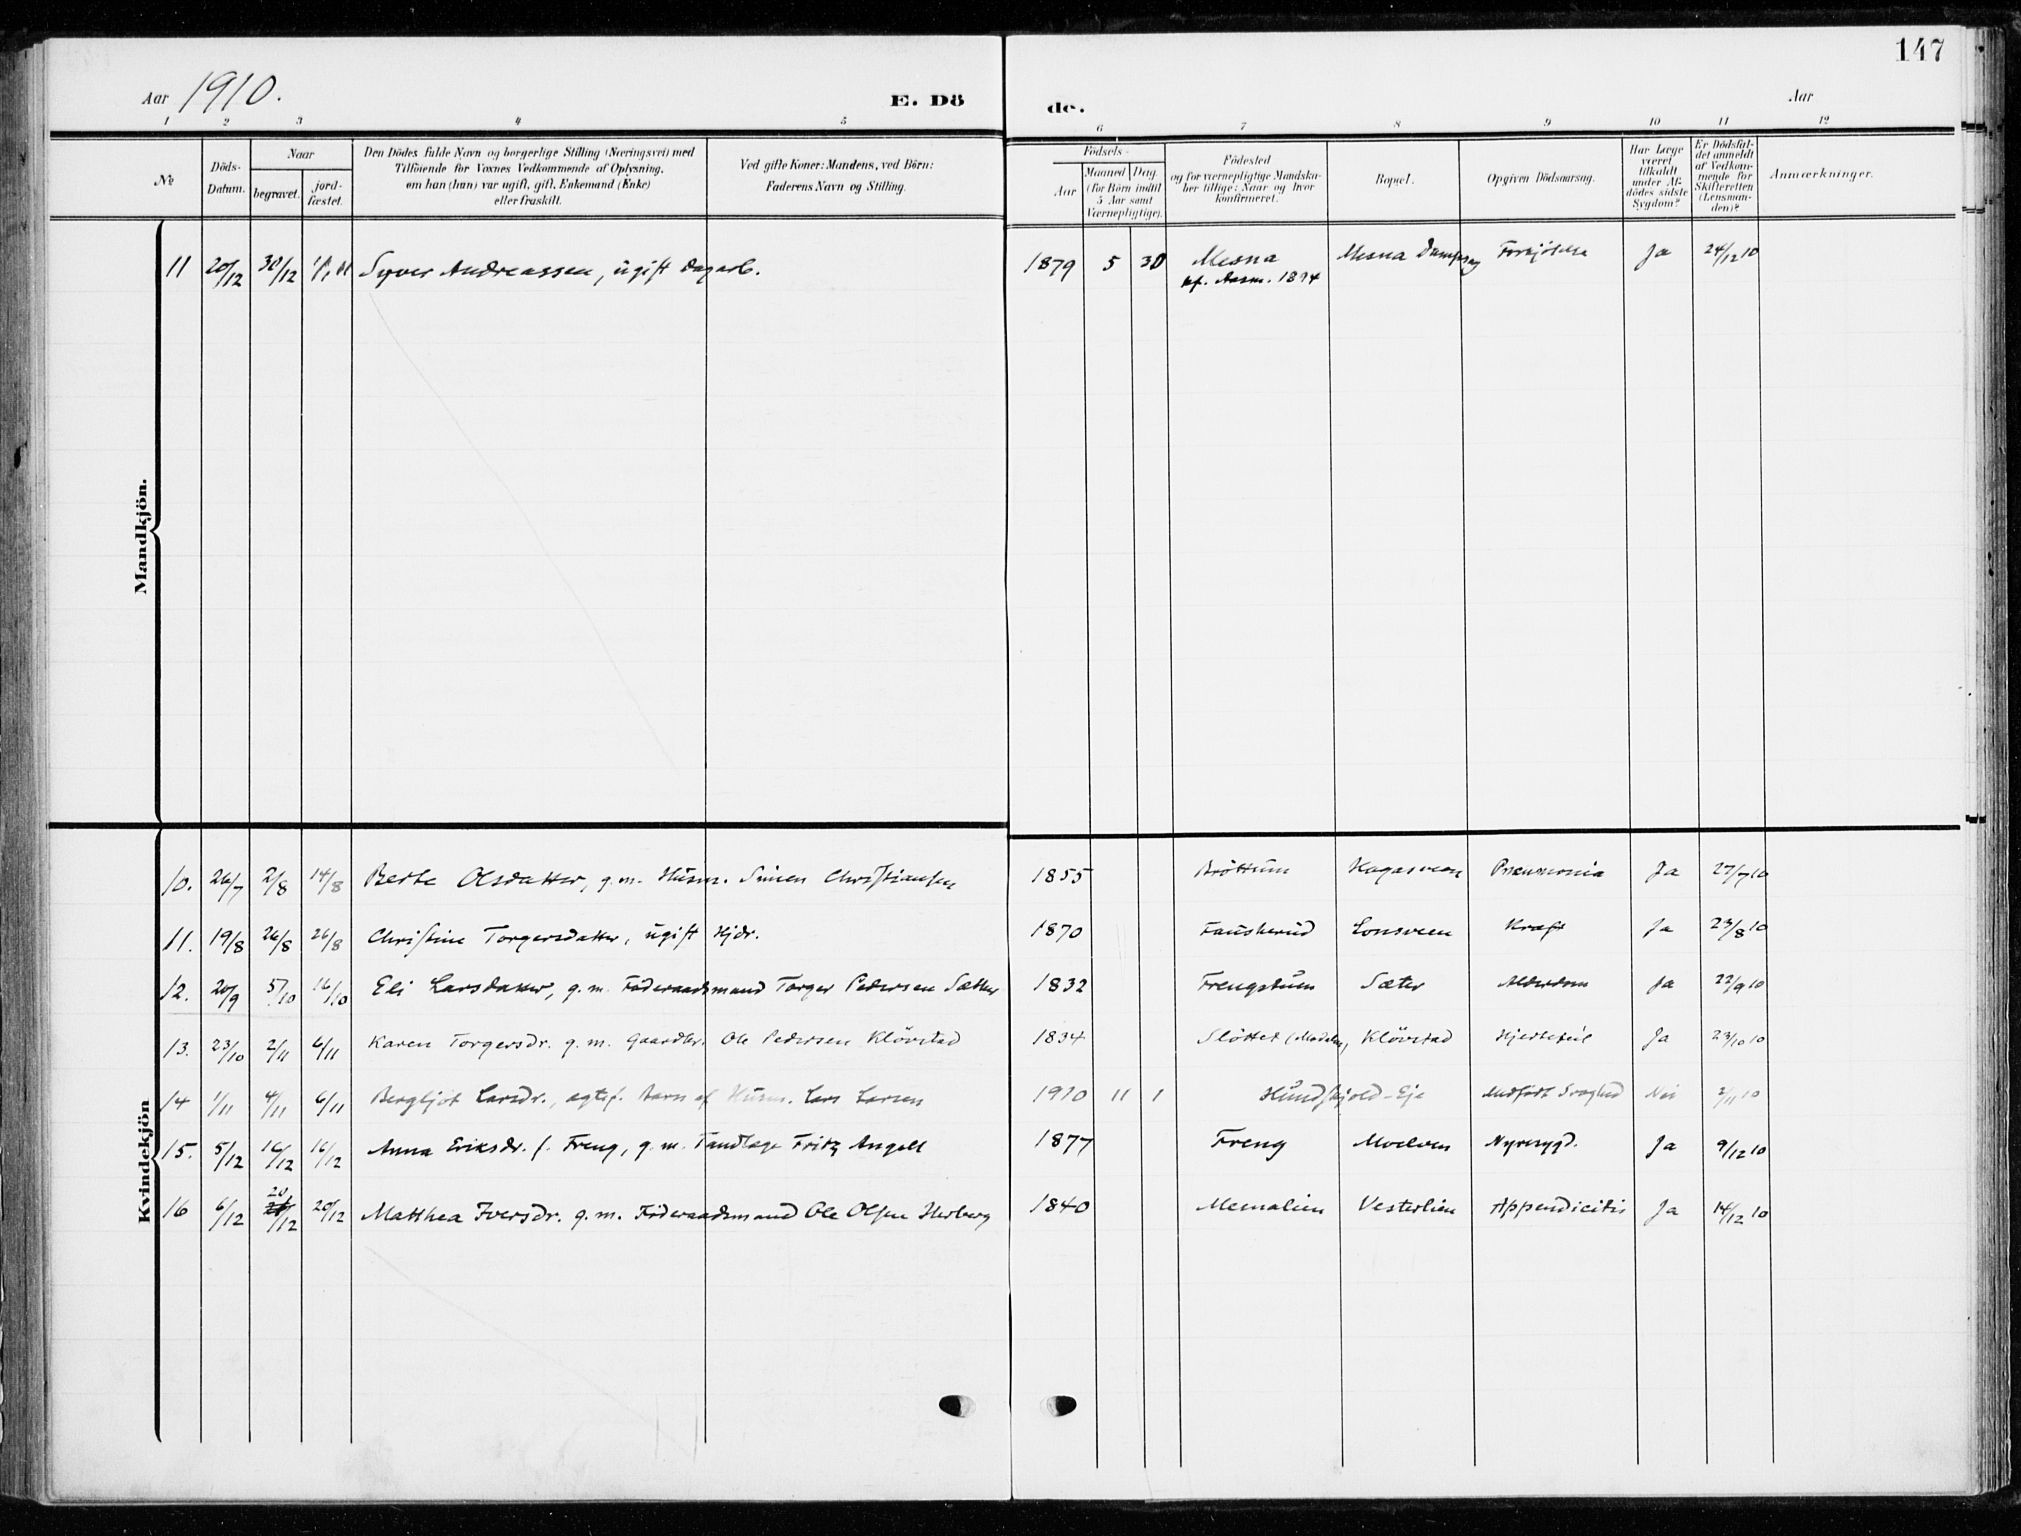 147
Aar 1910.
E. Dö
de.
Aar
1 2 3 4 5
6 7 8 9 10 11 12
№
Döds-
Datum.
Naar
begravet.
jord-
fæstet.
Den Dödes fulde Navn og borgerlige Stilling (Næringsvei) med
Tilföiende for Voxnes Vedkommende af Oplysning,
om han (hun) var ugift, gift, Enkemand (Enke)
eller fraskilt.
Ved gifte Koner: Mandens, ved Börn:
Faderens Navn og Stilling.
Födsels-
Aar
Maaned Dag
(for Börn indtil
5 Aar samt
Værnepligtige).
Födested
og for værnepligtige Mandska-
ber tillige: Naar og hvor
konfirmeret.
Bopæl.
Opgiven Dödsaarsag.
Har Læge
været
tilkaldt
under Af-
dödes sidste
Sygdom?
Er Dödsfal-
det anmeldt
af Vedkom-
mende for
Skifteretten
(Lensman-
den)?
Anmærkninger.
Mandkjön.
11 20/12 30/12 Syver Andreassen, ugift dagarb. 1879 5 30 Mesna Mesna Dampsag Forkjölelse Ja 24/12 10
kf. 1894
Kvindekjön
10. 26/7 2/8 14/8 Berte Olsdatter, g.m. Husm. Simen Christiansen 1855 Bröttum Hagasveen Pneumonia Ja 27/7 10
11. 19/8 26/8 26/8 Christine Torgersdatter, ugift Hjdr. 1870 Fauskerud Lonsveen Kræft Ja 23/8 10
12. 20/9 5/10 16/10 Eli Larsdatter, g.m. Föderaadsmand Torger Pedersen Sæther 1832 Frengstuen Sæter Alderdom Ja 22/9 10
13. 23/10 2/11 6/11 Karen Torgersdr. g.m. Gaardbr. Ole Pedersen Klövstad 1834 Slöttet Klövstad Hjertefeil Ja 23/10 10
14 1/11 4/11 6/11 Bergljot Larsdr., ægtef. Barn af Husm. Lars Larsen 1910 11 1 Hundskjold-Eje Medfödt Svaghed Nei 2/11 10
15. 5/12 16/12 16/12 Anna Eriksdr. f. Freng, g.m. Tandlæge Fritz Angell 1877 Freng Moelven Nyresygd. Ja 9/12 10
16 6/12 20/12 20/12 Matthea Iversdr. g.m. Föderaadsmand Ole Olsen Herberg 1840 Mesnalien Vesterlien Appendicitis Ja 14/12 10